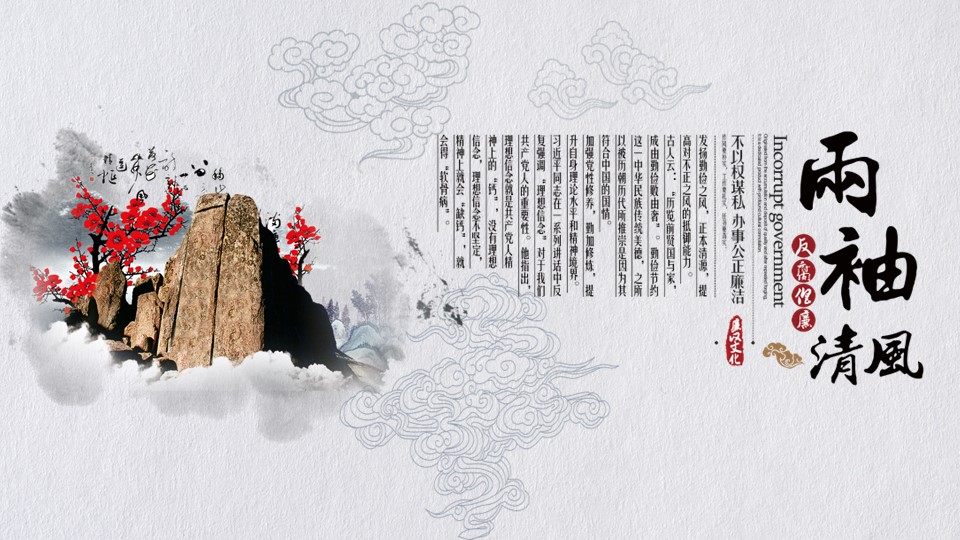 兩袖清風
反腐倡廉
Incorrupt government
不以权谋私 办事公正廉洁
发扬勤俭之风，正本清源，提
高对不正之风的抵御能力。
古人云："历览前贤国与家，
成由勤俭败由奢"。勤俭节约
这一中华民族传统美德，之所
以被历朝历代所推崇是因为其
符合中国的国情。
加强党性修养，勤加修炼，提
升自身理论水平和精神境界。
习近平同志在一系列讲话中反
复强调，"理想信念"对于我们
共产党人的重要性。他指出，
理想信念就是共产党人精
神上的"钙"，没有理想
信念，理想信念不坚定，
精神上就会"缺钙"，就
会得"软骨病"。